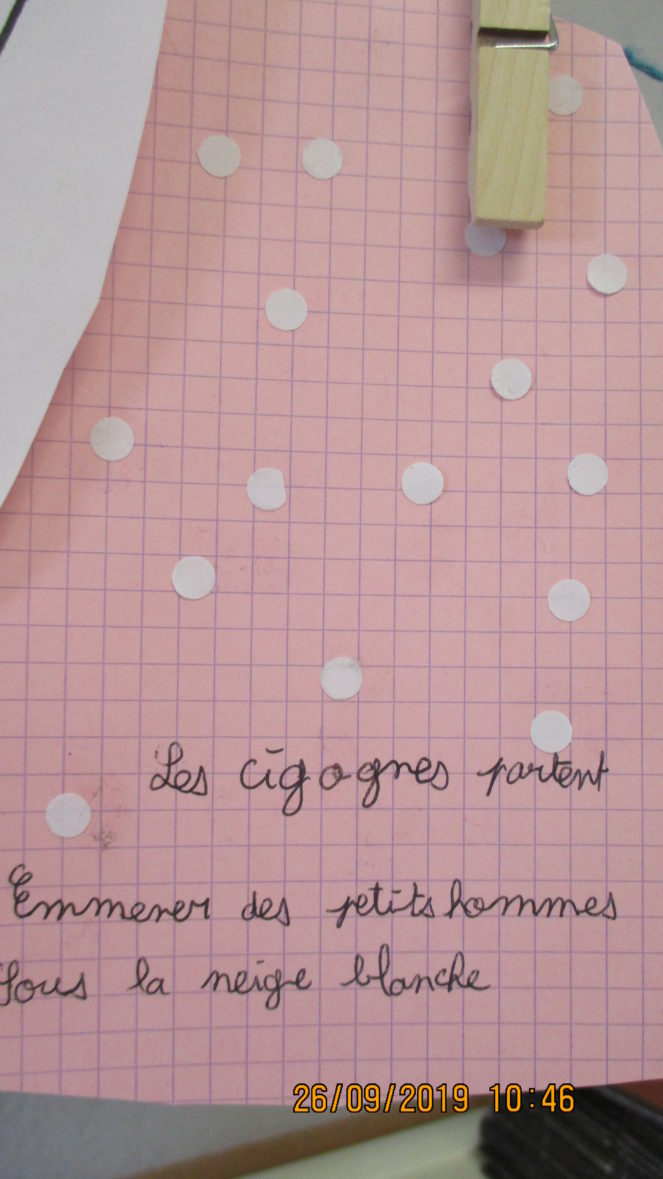 Les cigognes partent
Emmener des petits hommes
Sous la neige blanche
26/09/2019 10:46